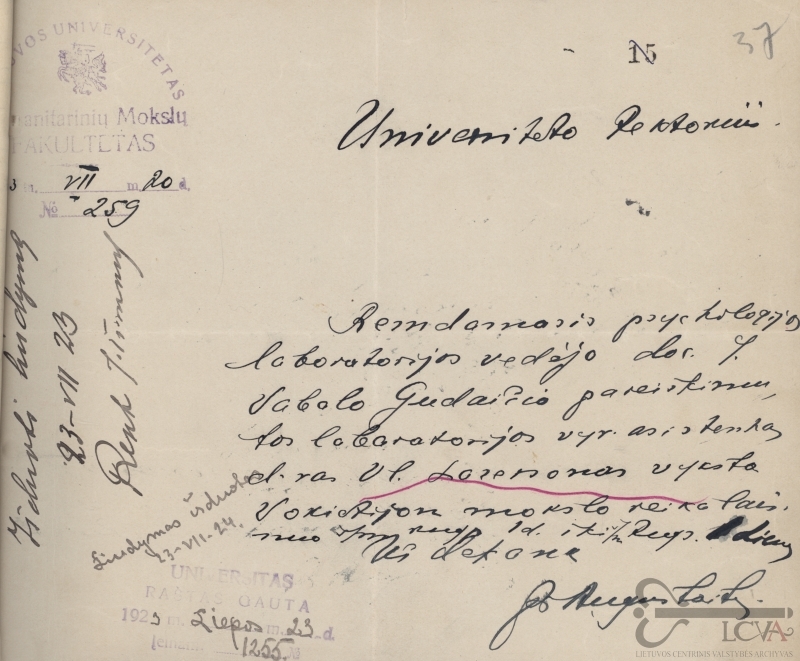 15
37
VOS UNIVERSITETAS
Mokslų
FAKULTETAS
m. VII m. 20 d.
№ 259
Universiteto Rektoriui.
Remdamasis psychologijos
laboratorijos vedėjo doc. J.
Vabalo Gudaičio pareiškimu,
tos laboratorijos vyr. asistentas
d-ras Vl. Lazersonas vyksta
Vokietijon mokslo reikalais
nuo
Už dekaną
Augustaitis
Išduoti liudymą
23-VII 23
Rekt.
Liudymas išduotas
23-VII-24.
UNIVERSITAS
RAŠTAS GAUTA
1923 m. Liepos m. 23 d.
1255 №
LCVA
LIETUVOS CENTRINIS VALSTYBĖS ARCHYVAS